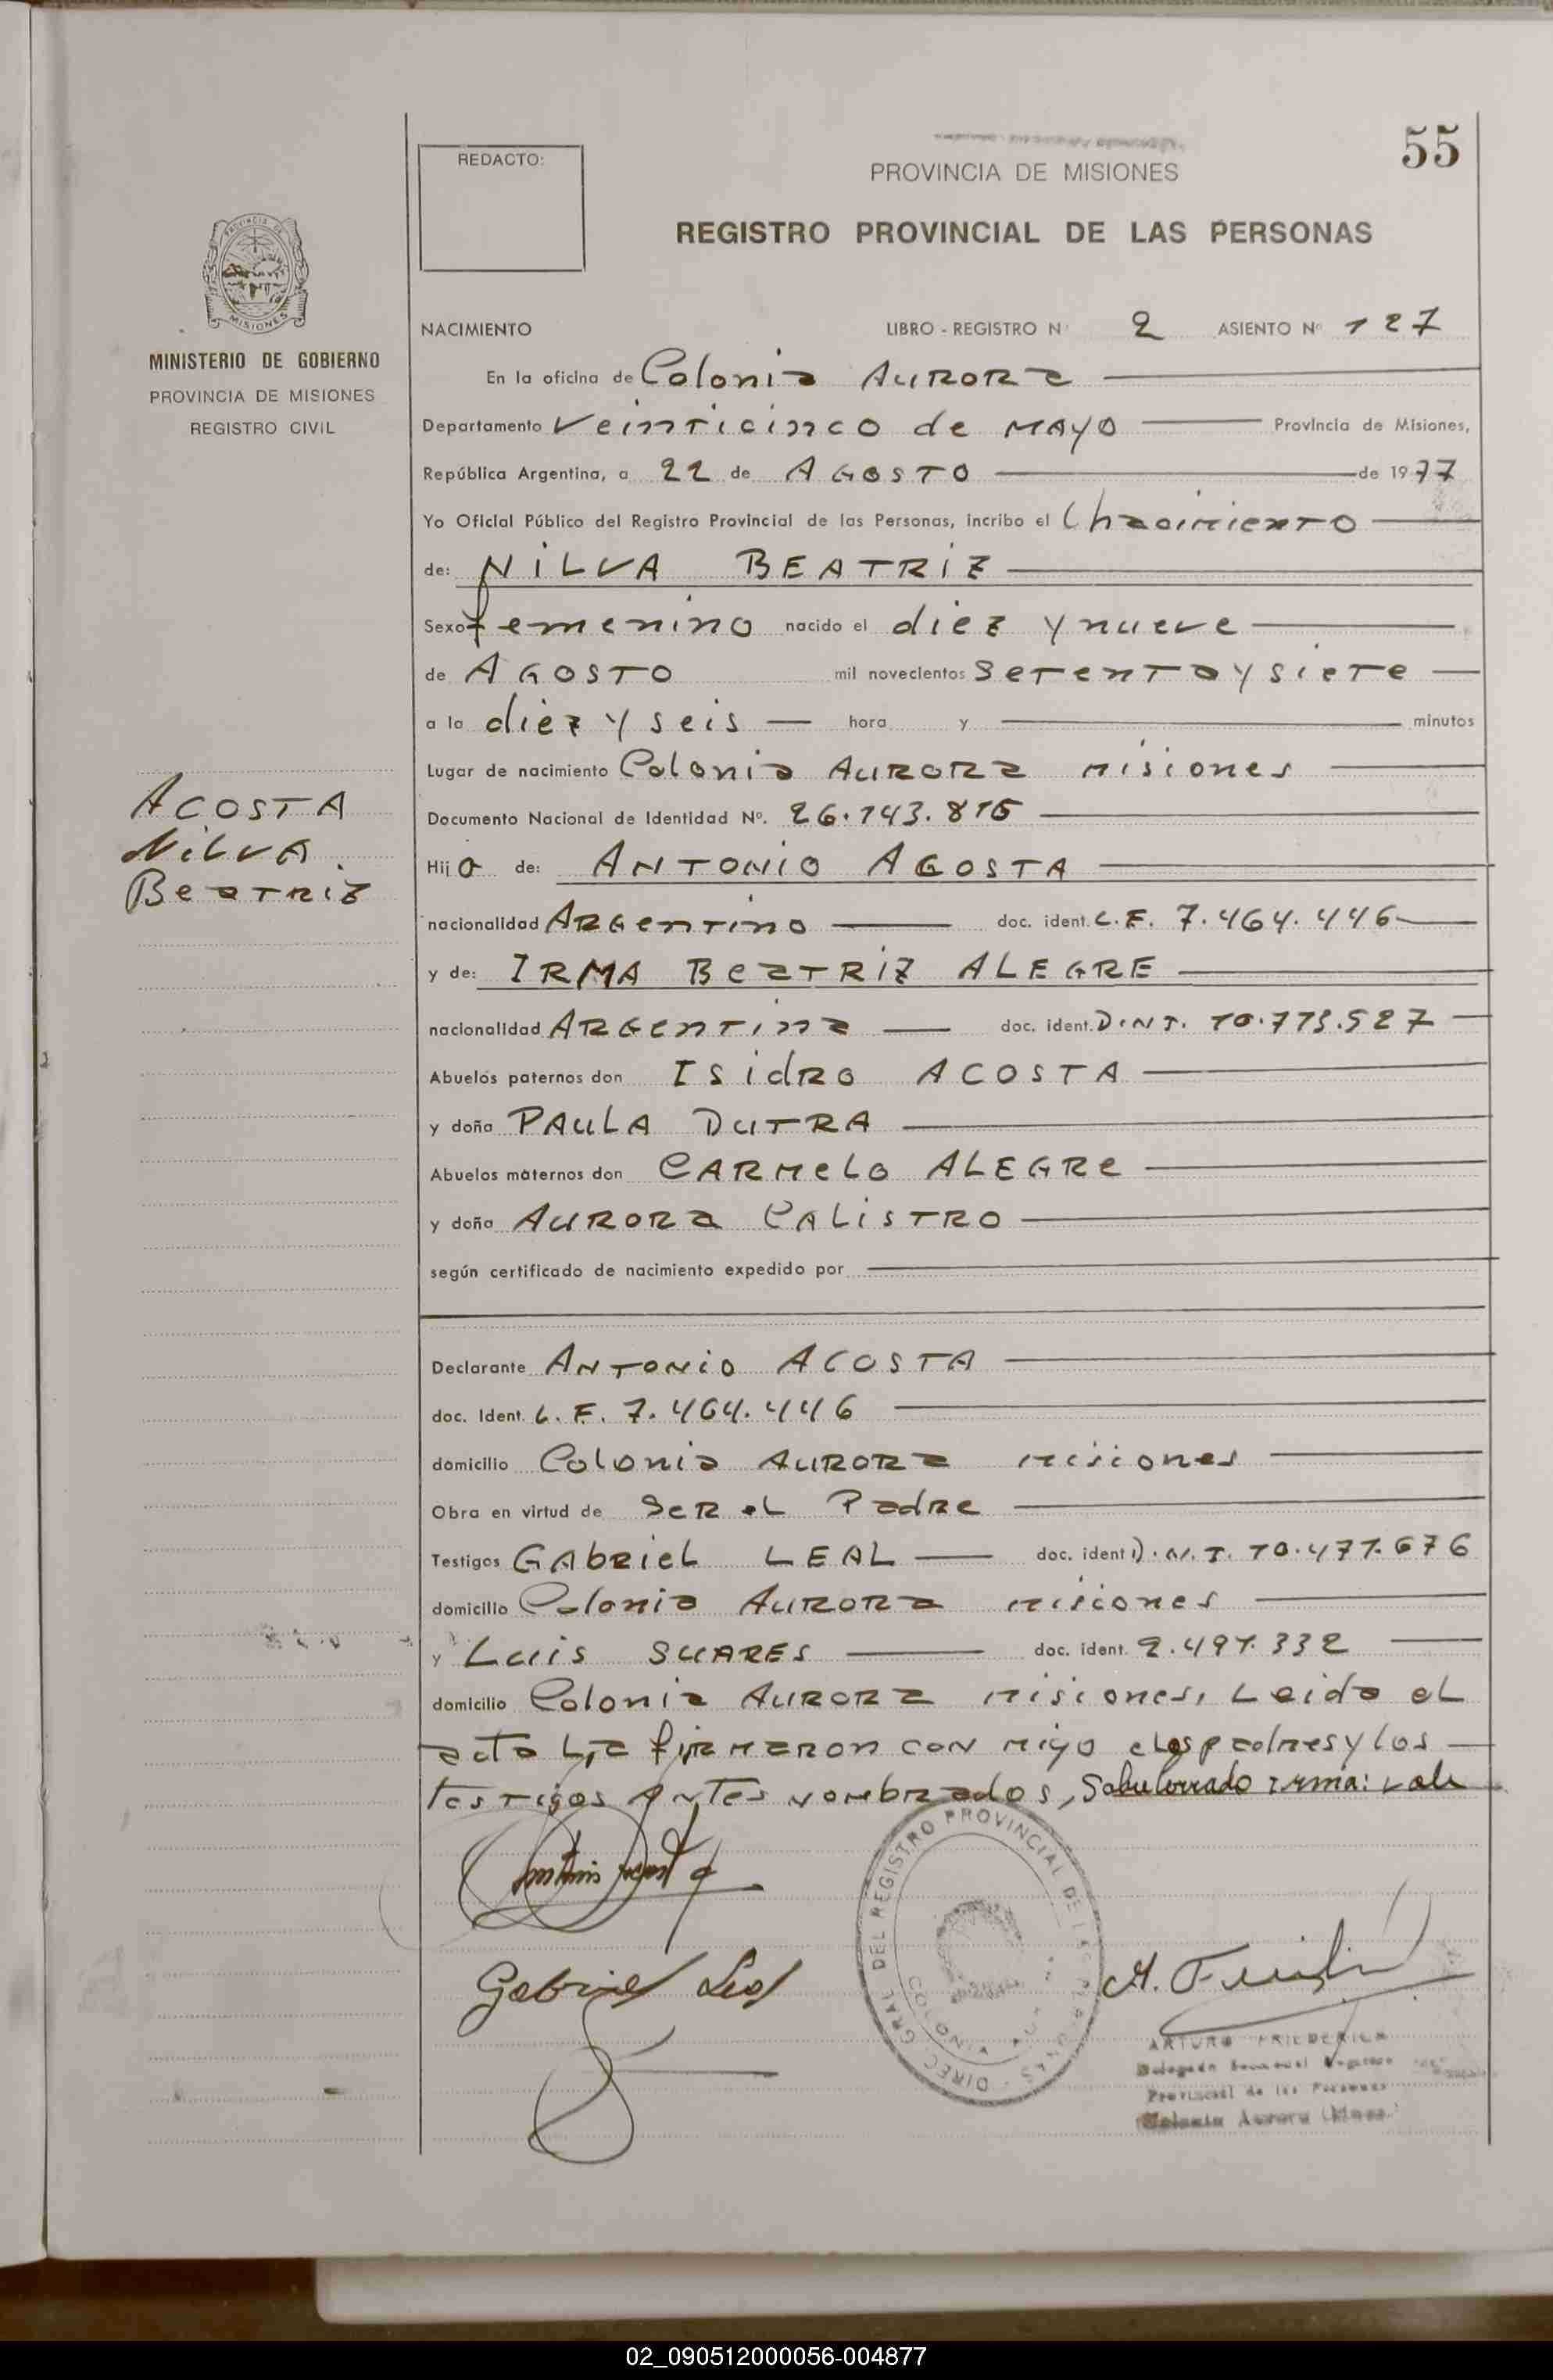 55
REDACTO:
PROVINCIA DE MISIONES
REGISTRO PROVINCIAL DE LAS PERSONAS
MISIONES
MINISTERIO DE GOBIERNO
PROVINCIA DE MISIONES
REGISTRO CIVIL
NACIMIENTO LIBRO - REGISTRO Nº 2 ASIENTO Nº 127
En la oficina de Colonia AURORA
Departamento Veinticinco de MAYO Provincia de Misiones,
República Argentina, a 22 de AGOSTO de 1977
Yo Oficial Público del Registro Provincial de las Personas, incribo el
de: NILVA BEATRIZ
Sexo femenino nacido el diez y nueve
de AGOSTO mil novecientos setenta y siete
a la diez y seis hora y minutos
Lugar de nacimiento Colonia AURORA misiones
Documento Nacional de Identidad Nº. 26.143.815
ACOSTA
NILVA
BeatRiz
Hija de: ANTONIO ACOSTA
nacionalidad ARGentino doc. ident. L.E. 7.464.446
y de: IRMA BeaTRIZ ALEGRE
nacionalidad ARGentina doc. ident. D.N.I. 10.773.527
Abuelos paternos don ISidRO ACOSTA
y doña PAULA DUTRA
Abuelos maternos don CARMeLO ALEGRe
y doña AURORA CALISTRO
según certificado de nacimiento expedido por
Declarante ANTONIO ACOSTA
doc. Ident. L.E. 7.464.446
domicilio Colonia AURORA misiones
Obra en virtud de SeR eL Padre
Testigos GAbRieL LEAL doc. ident D.N.I. 10.477.676
domicilio Colonia AURORA misiones
y Luis SUARES doc. ident. 2.491.332
domicilio Colonia AURORA misiones, Leida el
acta La firmaron con migo los padres y los
testigos Antes nombrados, Sobreborrado irma: vale
Gabriel Leal
A.
DIREC. GRAL DEL REGISTRO PROVINCIAL DE LAS PERSONAS
COLONIA
ARTURO
Provincial de las Personas
Colonia Aurora
02_090512000056-004877